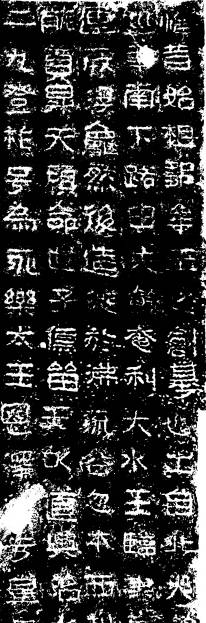 惟昔始祖鄒牟王之創基也出自北夫
巡車南下路由夫餘奄利大水王臨津
連葭浮龜然後造渡於沸流谷忽本西
龍頁昇天顧命世子儒留王以道興治
二九登祚号為永樂太王恩澤于皇